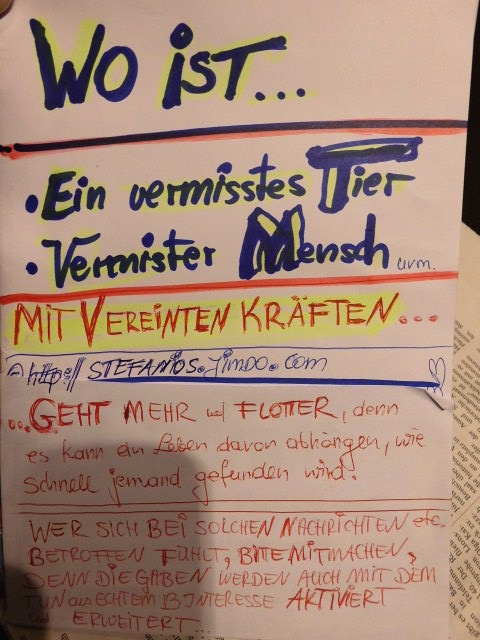 Wo ist...
• Ein vermisstes Tier
• Vermister Mensch uvm.
MIT VEREINTEN KRÄFTEN...
http:// STEFANIOS.Jimdo.com
...GEHT MEHR u/ FLOTTER, denn
es kann ein Leben davon abhängen, wie
schnell jemand gefunden wird!
WER SICH BEI SOLCHEN NACHRICHTEN etc.
BETROFFEN FÜHLT, BITE MITMACHEN,
DENN DIE GABEN WERDEN AUCH MIT DEM
TUN aus ECHTEM INTERESSE AKTIVIERT
ERWEITERT...